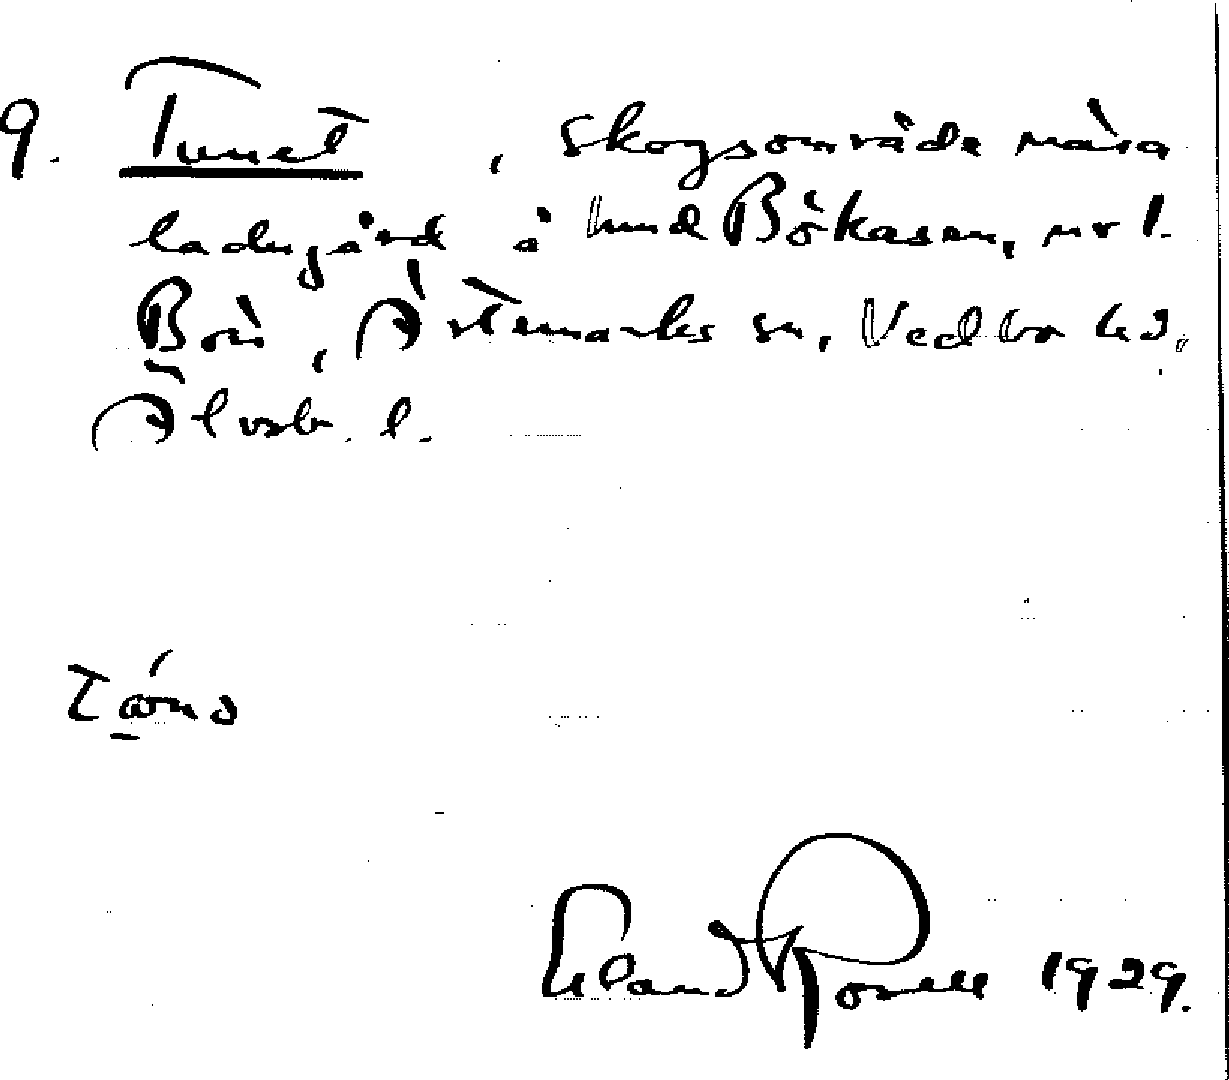 9. Tunet, skogsområde nära
ladugård å hmd Bökasen, nr 1.
Bön, Ärtemarks sn, Vedbo hd.
Älvsb. l.
Erland Rosell 1929.